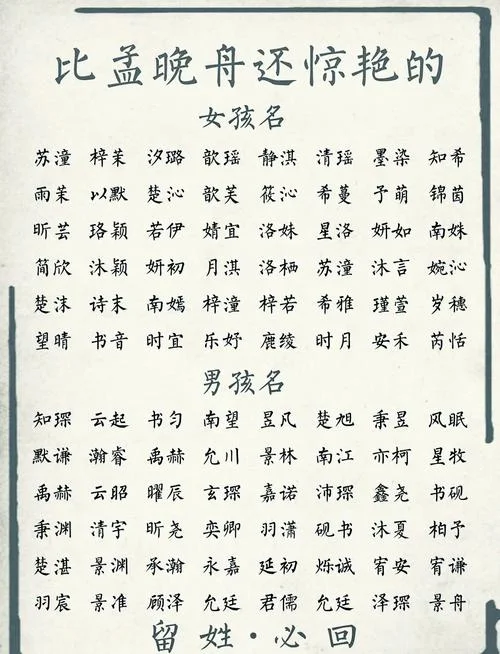 比孟晚舟还惊艳的
女孩名
苏潼 梓茉 汐璐 歆瑶 静淇 清瑶 墨染 知希
雨茉 以默 楚沁 歆芙 筱沁 希蔓 予萌 锦茵
昕芸 珞颖 若伊 婧宜 洛姝 星洛 妍如 南姝
简欣 沐颖 妍初 月淇 洛栖 苏潼 沐言 婉沁
楚沫 诗末 南嫣 梓潼 梓若 希雅 瑾萱 岁穗
望晴 书音 时宜 乐妤 鹿绫 时月 安禾 芮恬
男孩名
知琛 云起 书匀 南望 昱凡 楚旭 秉昱 风眠
默谦 瀚睿 禹赫 允川 景林 南江 亦柯 星牧
禹赫 云昭 曜辰 玄琛 嘉诺 沛琛 鑫尧 书砚
秉渊 清宇 昕尧 奕卿 羽潇 砚书 沐夏 柏予
楚湛 景渊 承瀚 永嘉 延初 烁诚 宥安 宥谦
羽宸 景准 顾泽 允廷 君儒 允廷 泽琛 景舟
留姓·必回